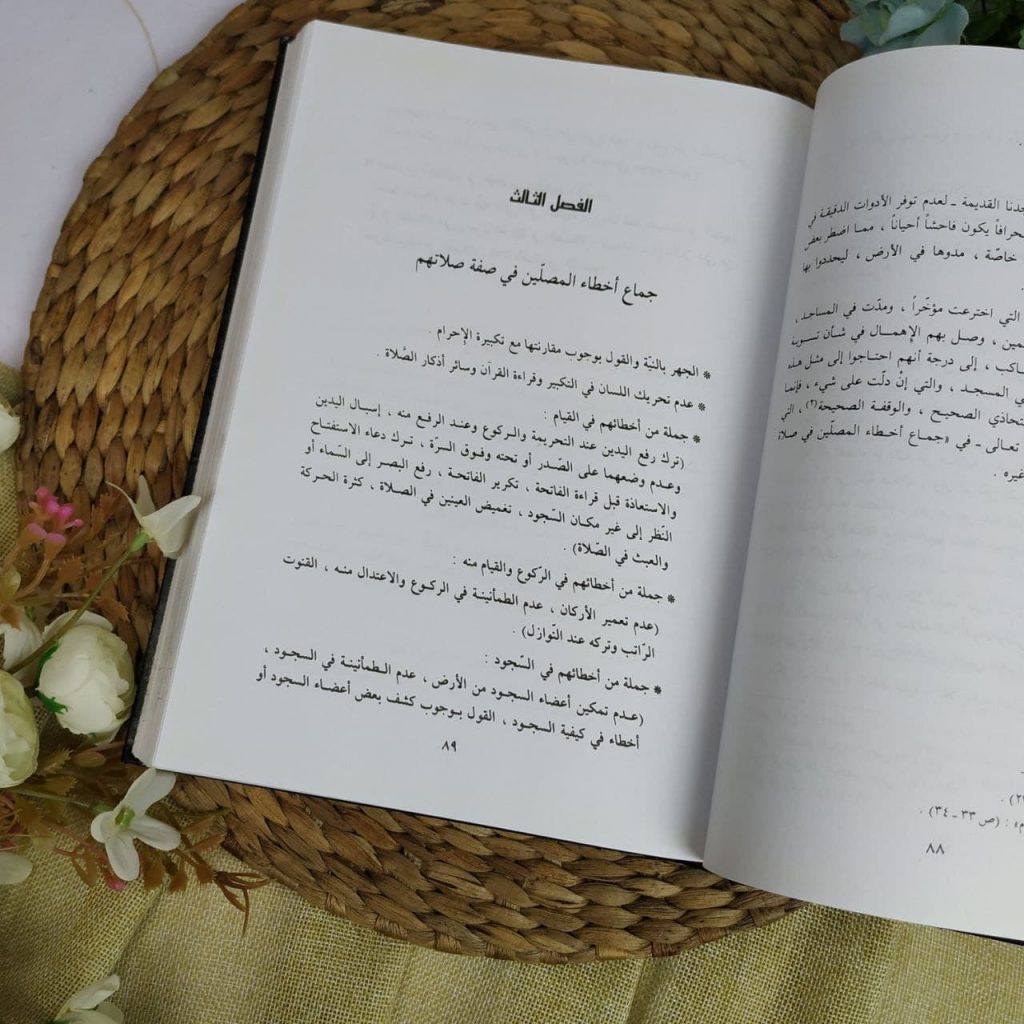 جدنا القديمة ـ لعدم توفر الأدوات الدقيقة في
حرافاً يكون فاحشاً أحياناً ، مما اضطر بعض
خاصّة ، مدوها في الأرض ، ليحددوا بها
التي اخترعت مؤخّراً ، ومدّت في المساجد ،
مين ، وصل بهم الإهمال في شأن تسوية
اكب ، إلى درجة أنهم احتاجوا إلى مثل هذه
ي المسجد ، والتي إنْ دلّت على شيء ، فإنما
تحاذي الصحيح ، والوقفة الصحيحة(٢) ، التي
تعالى ـ في «جماع أخطاء المصلّين في صلا
غيره .
: (ص ٣٣ ـ ٣٤) .
٨٨
الفصل الثالث
جماع أخطاء المصلّين في صفة صلاتهم
* الجهر بالنيّة والقول بوجوب مقارنتها مع تكبيرة الإحرام .
* عدم تحريك اللسان في التكبير وقراءة القرآن وسائر أذكار الصَّلاة .
* جملة من أخطائهم في القيام :
(ترك رفع اليدين عند التحريمة والركوع وعند الرفع منه ، إسبال اليدين
وعدم وضعهما على الصّدر أو تحته وفوق السرّة ، ترك دعاء الاستفتاح
والاستعاذة قبل قراءة الفاتحة ، تكرير الفاتحة ، رفع البصر إلى السّماء أو
النّظر إلى غير مكان السّجود ، تغميض العينين في الصلاة ، كثرة الحركة
والعبث في الصّلاة) .
* جملة من أخطائهم في الرّكوع والقيام منه :
(عدم تعمير الأركان ، عدم الطمأنينة في الركوع والاعتدال منه ، القنوت
الرّاتب وتركه عند النّوازل) .
* جملة من أخطائهم في السّجود :
(عدم تمكين أعضاء السجود من الأرض ، عدم الطمأنينة في السجود ،
أخطاء في كيفية السجود ، القول بوجوب كشف بعض أعضاء السجود أو
٨٩